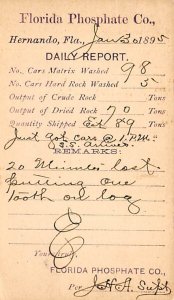 Florida Phosphate Co.,
Hernando, Fla., Jan 30 1895
DAILY REPORT.
No. Cars Matrix Washed 98
No. Cars Hard Rock Washed 5
Output of Crude Rock Tons
Output of Dried Rock 70 Tons
Quantity Shipped Est 89 Tons
Just got cars @ 1. P.M.
REMARKS:
20 Minutes lost
putting one
tooth oil log
FLORIDA PHOSPHATE CO.,
Per J.H.A. Supt